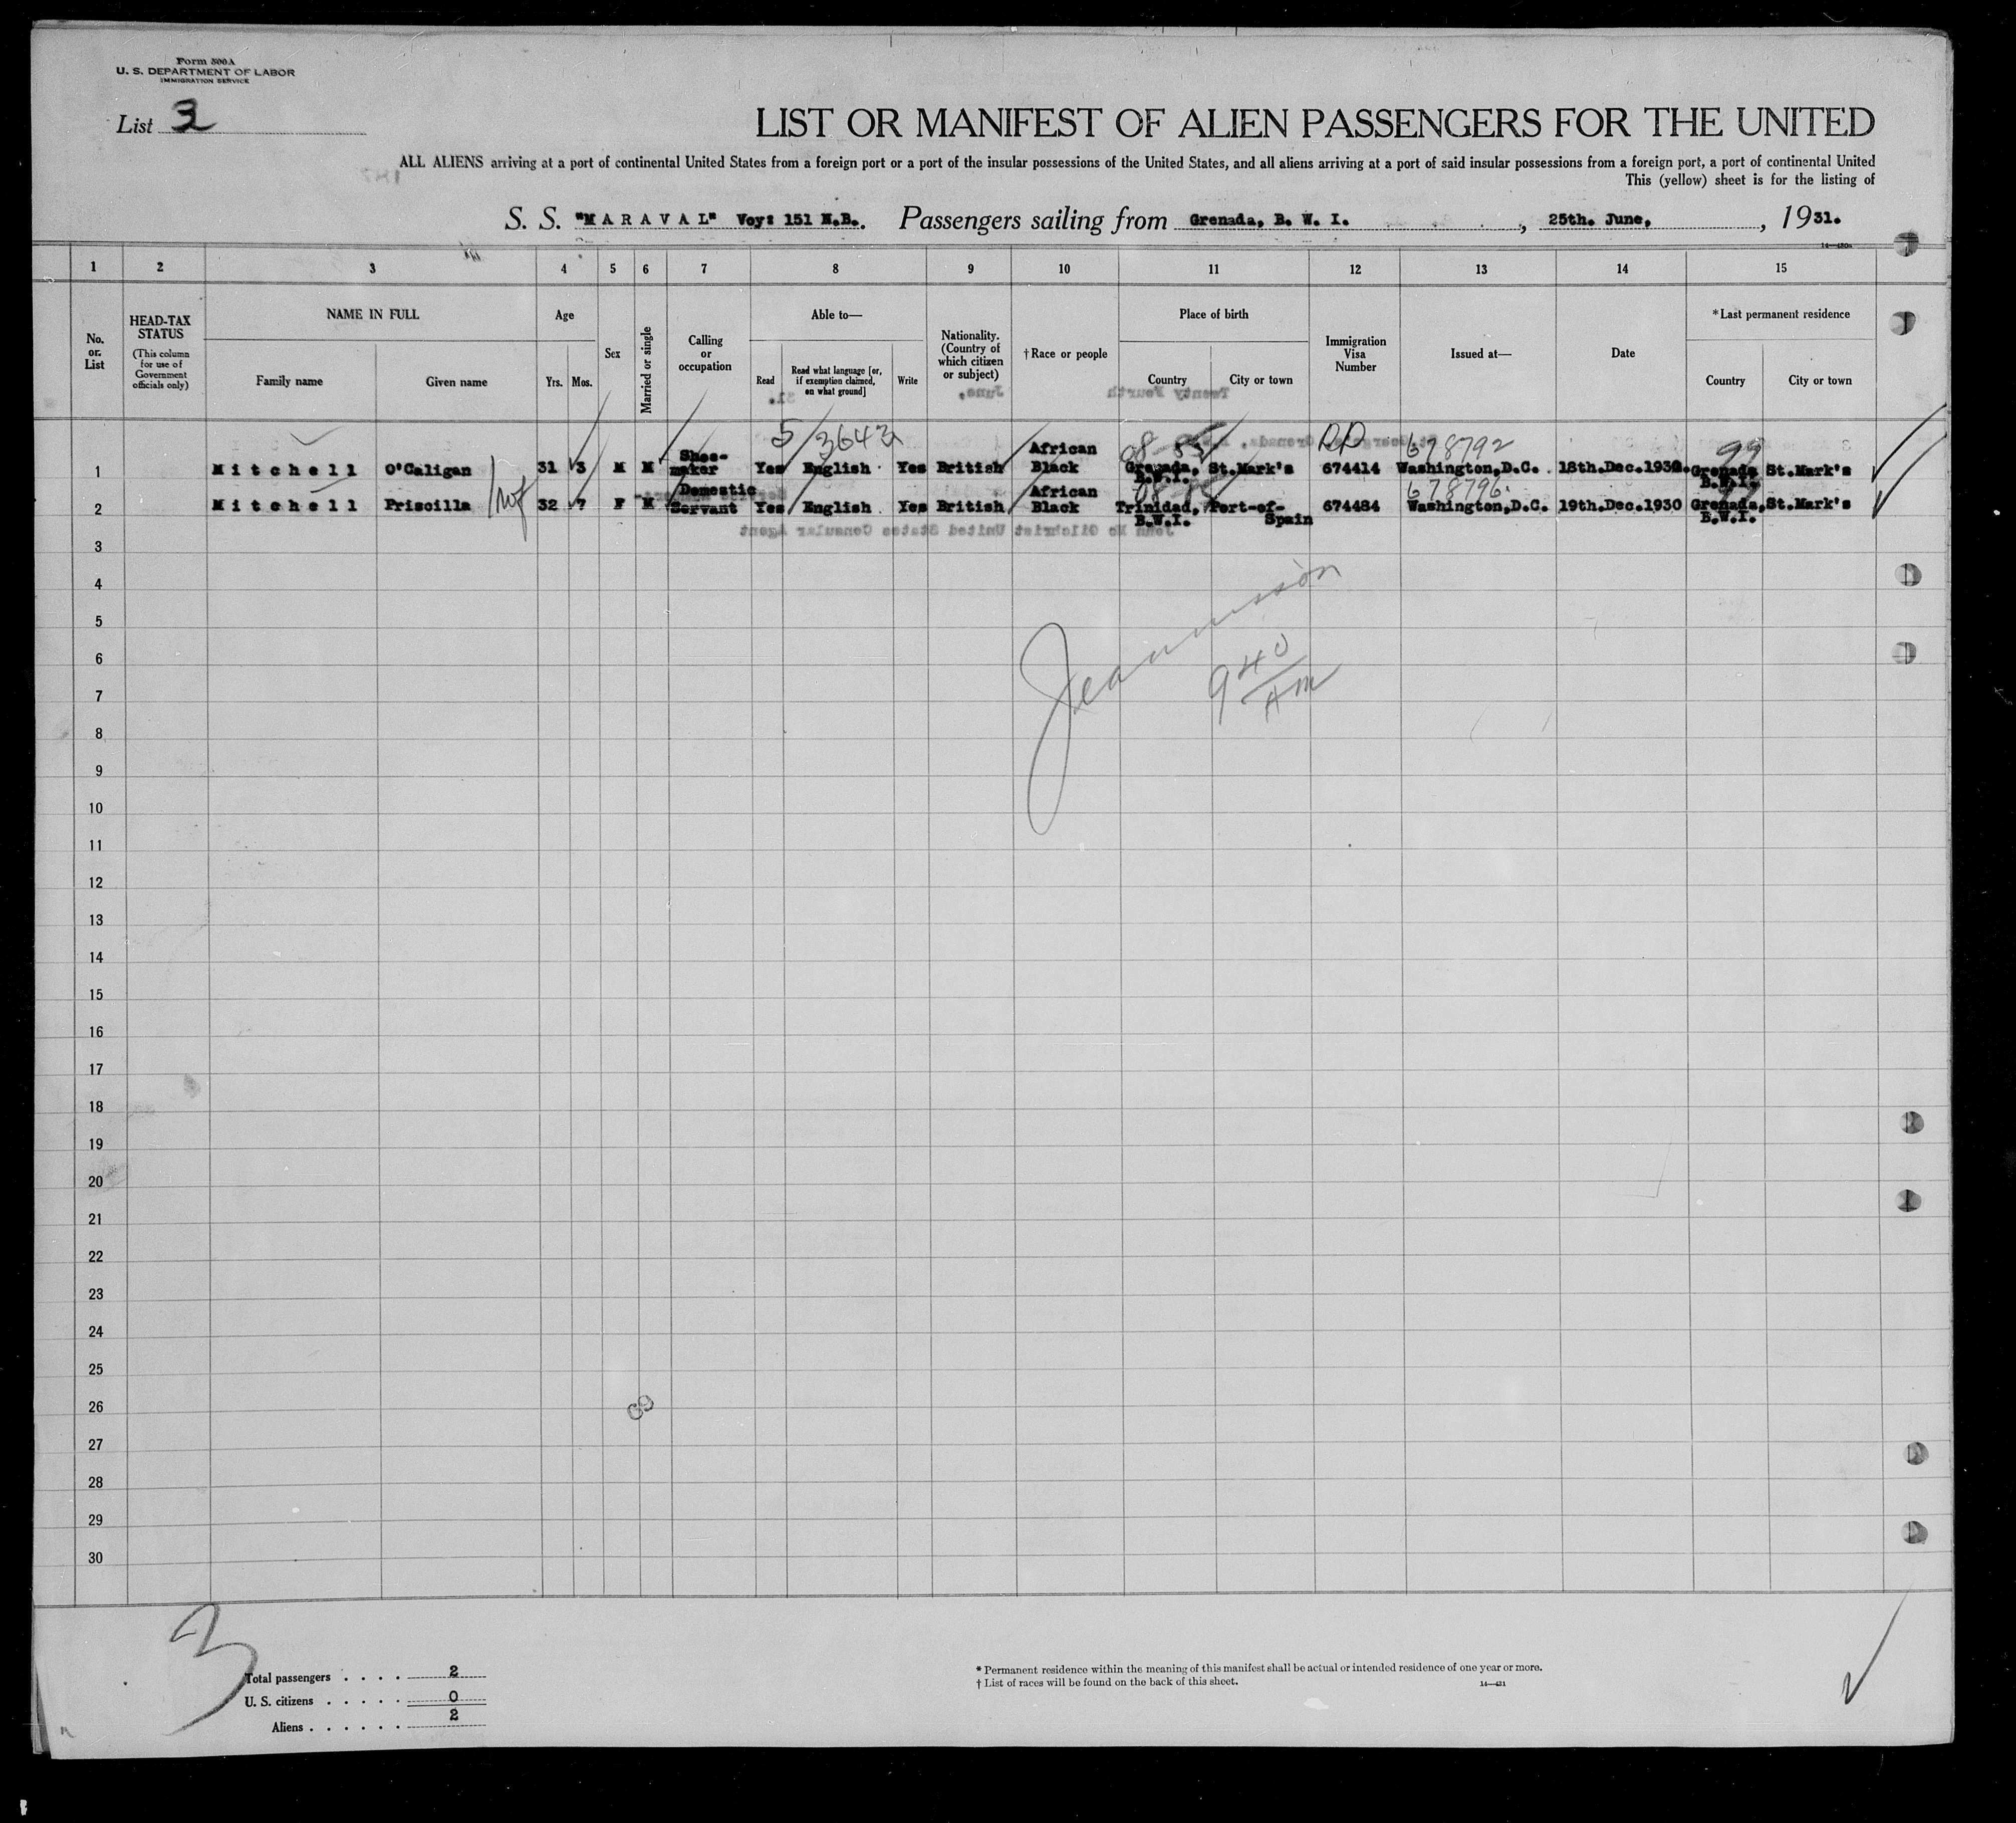 Form 500A
U. S. DEPARTMENT OF LABOR
IMMIGRATION SERVICE
List 3
LIST OR MANIFEST OF ALIEN PASSENGERS FOR THE UNITED
ALL ALIENS arriving at a port of continental United States from a foreign port or a port of the insular possessions of the United States, and all aliens arriving at a port of said insular possessions from a foreign port, a port of continental United
This (yellow) sheet is for the listing of
S. S. "MARAVAL" Voy: 151 N.B. Passengers sailing from Grenada, B. W. I. , 25th. June, , 1931.
1 2 3 4 5 6 7 8 9 10 11 12 13 14 15
No. or. List
HEAD-TAX STATUS
(This column for use of Government officials only)
NAME IN FULL
Family name Given name
Age
Yrs. Mos.
Sex
Married or single
Calling or occupation
Able to—
Read
Read what language [or, if exemption claimed, on what ground]
Write
Nationality. (Country of which citizen or subject)
†Race or people
Place of birth
Country City or town
Immigration Visa Number
Issued at—
Date
*Last permanent residence
Country City or town
5/3643 RP 678792 99
1 Mitchell O'Caligan 31 3 M M Shoe-maker Yes English Yes British African Black Grenada, B.W.I. St.Mark's 674414 Washington,D.C. 18th.Dec.1930. Grenada B.W.I. St.Mark's
678796
2 Mitchell Priscilla wf 32 7 F M Domestic Servant Yes English Yes British African Black Trinidad, B.W.I. Port-of-Spain 674484 Washington,D.C. 19th.Dec.1930 Grenada, B.W.I. St.Mark's
3
4
5
6
9 40 AM
7
8
9
10
11
12
13
14
15
16
17
18
19
20
21
22
23
24
25
26
27
28
29
30
3
Total passengers . . . . 2
U. S. citizens . . . . . 0
Aliens . . . . . . 2
* Permanent residence within the meaning of this manifest shall be actual or intended residence of one year or more.
† List of races will be found on the back of this sheet.